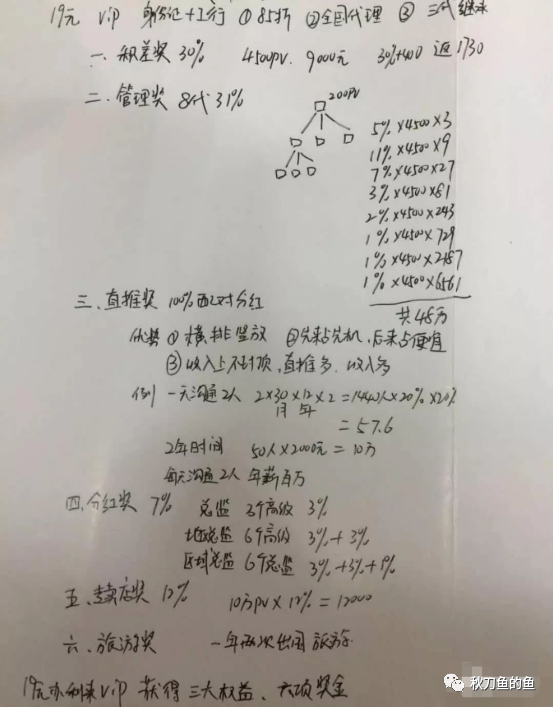 19元 vip 身份证+工行 ①85折 ②全国代理 ③三代继承
一、积差奖 30% 4500pv. 9000元 30%+400 返1730
二、管理奖 8代31%
200PV
5%×4500×3
11%×4500×9
7%×4500×27
3%×4500×81
2%×4500×243
1%×4500×729
1%×4500×2187
1%×4500×6561
共48万
三、直推奖 100%配对分红
优势 ①横排竖放 ②先来占先机,后来占便宜
③收入上不封顶,直推多、收入多
例 一天沟通2人 2×30×12×2=1440人×20%×20%
月 年
=57.6
2年时间 50人×2000元=10万
每天沟通2人 年薪百万
四、分红奖 7% 总监 3个高级 3%
地区总监 6个高级 3%+3%
区域总监 6个总监 3%+3%+1%
五、专卖店奖 12% 10万PV×12%=12000
六、旅游奖 一年两次出国旅游
19元办利来vip 获得三大权益、六项奖金
秋刀鱼的鱼